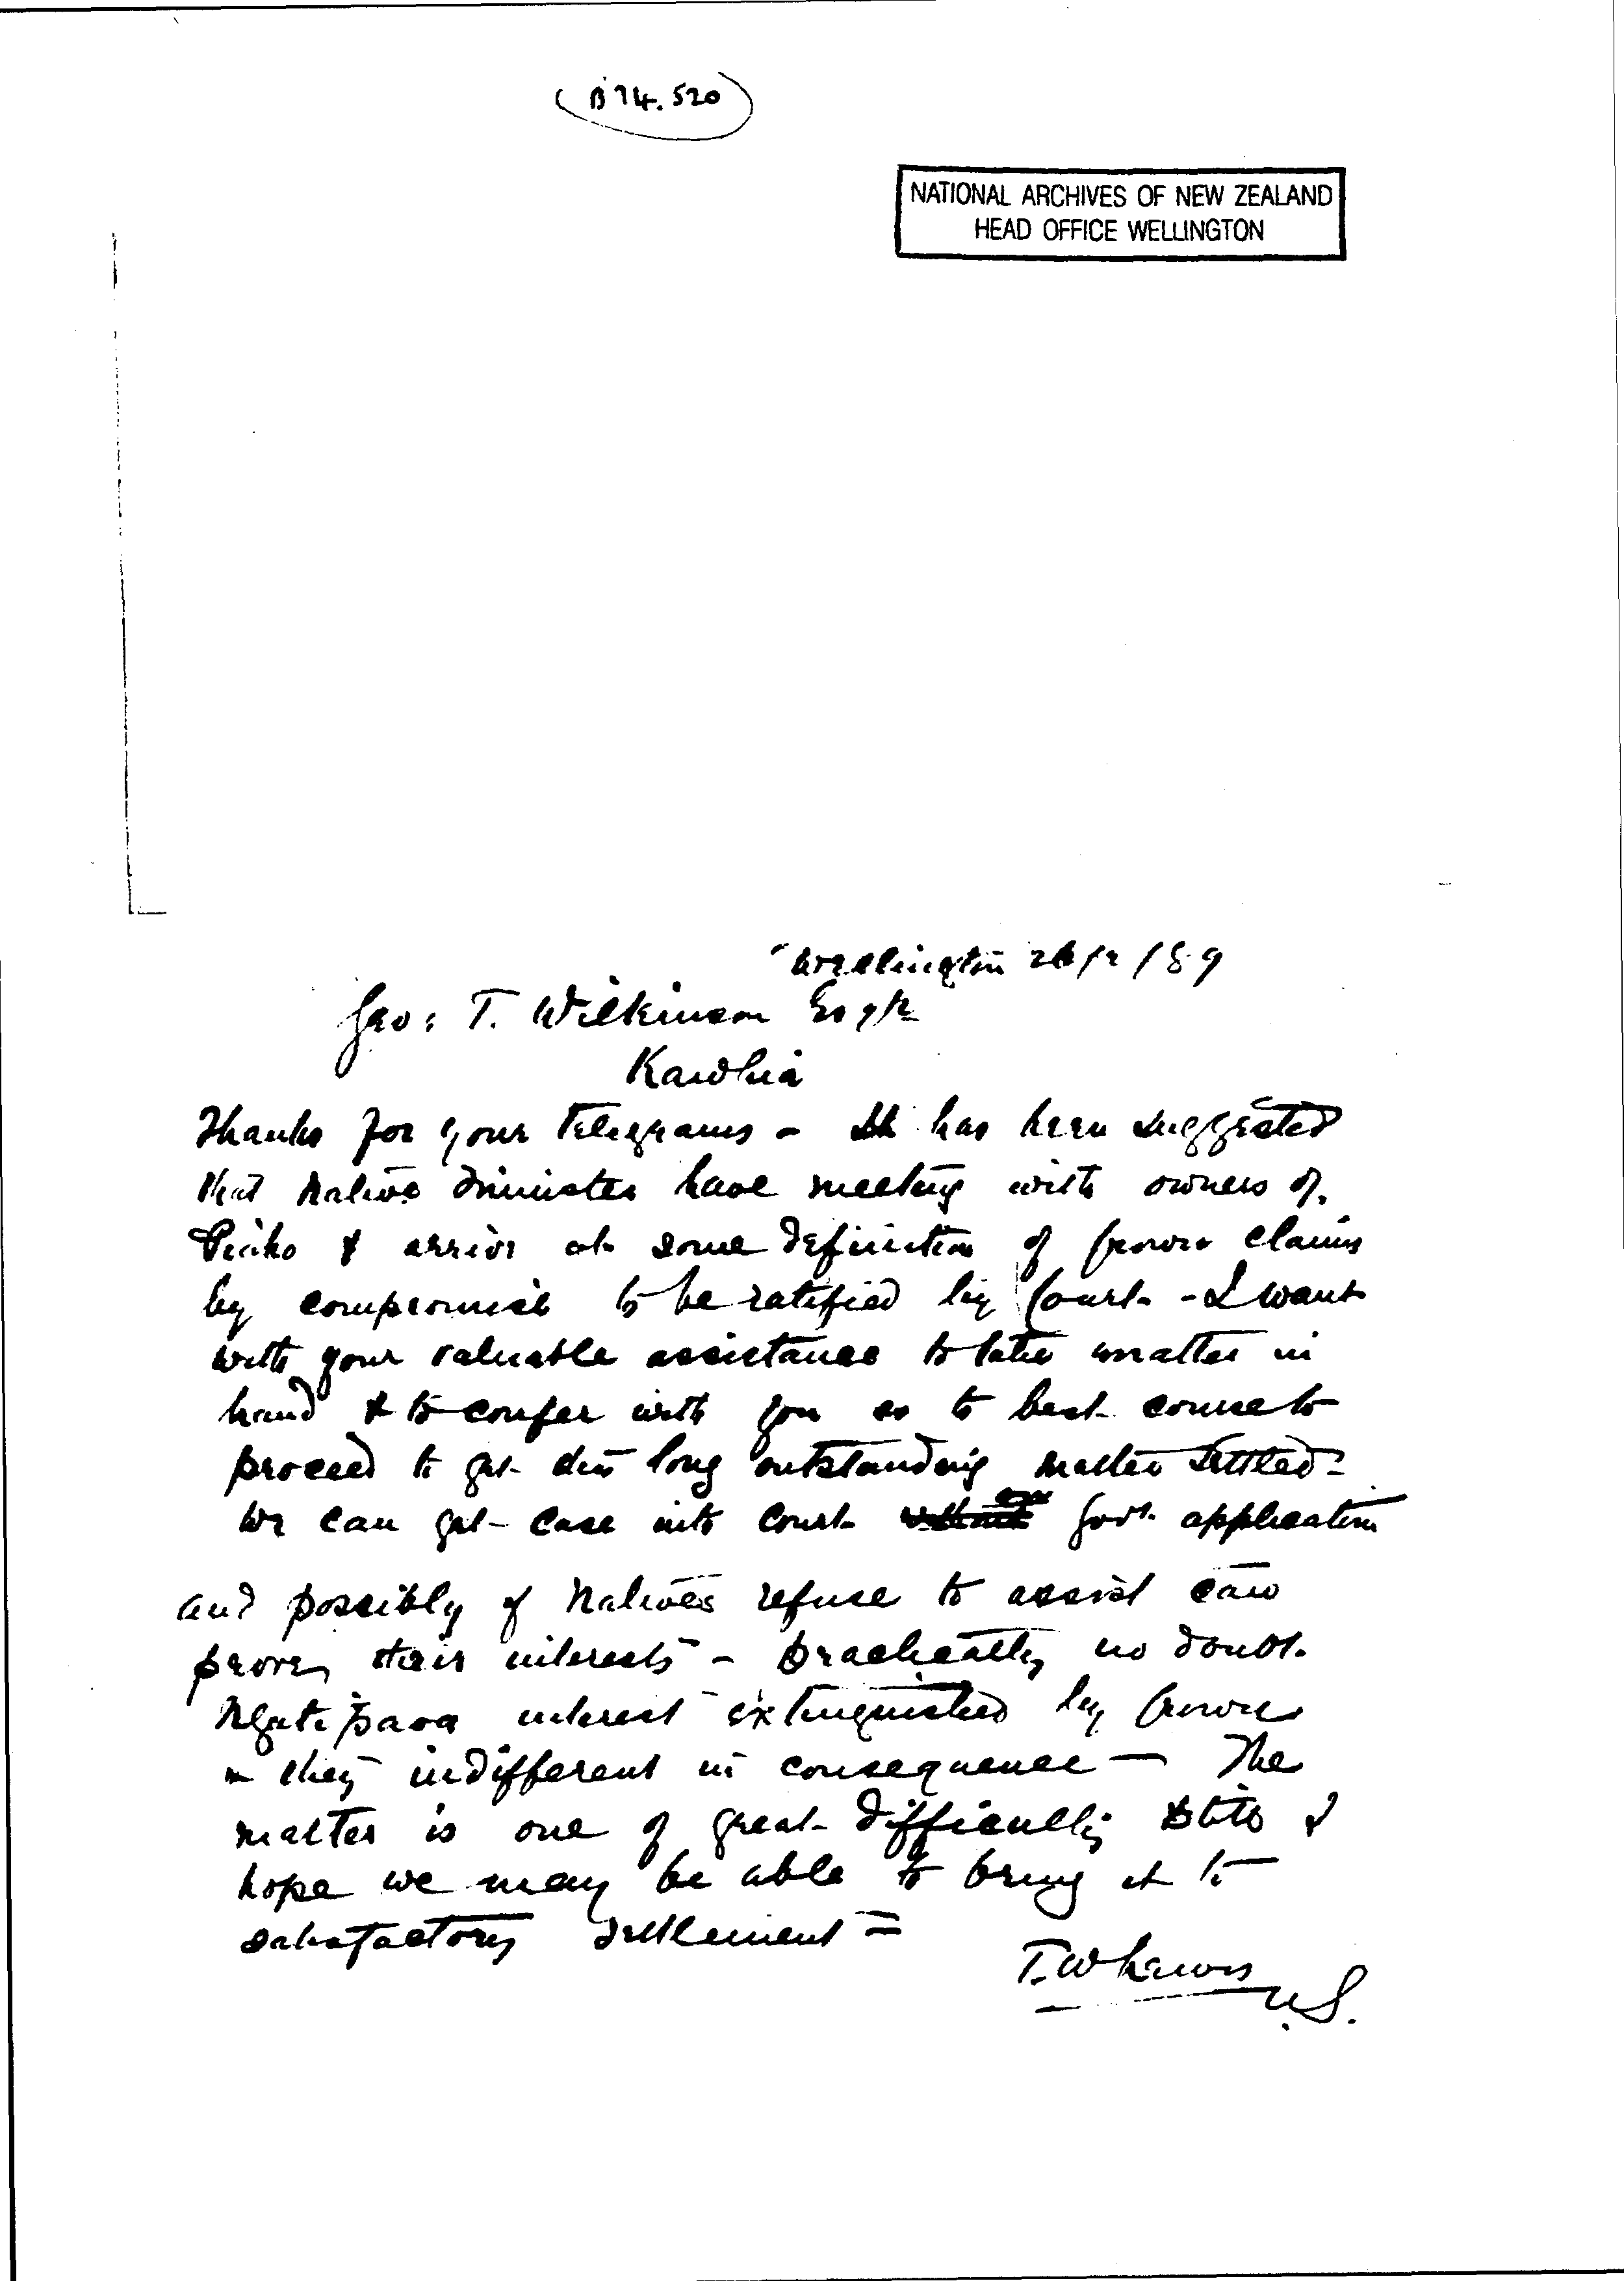 (B 74.520)
NATIONAL ARCHIVES OF NEW ZEALAND
HEAD OFFICE WELLINGTON
Wellington 26/2/89
Geo: T. Wilkinson Esqr
Kawhia
Thanks for your telegrams - It has been suggested
that Native Minister have meeting with owners of
Piako & arrive at some definition of Crown claims
by compromise to be ratified by Court - I want
with your valuable assistance to take matter in
hand & to confer with you as to best course to
proceed to get this long outstanding matter settled -
We can get case into Court on Govt application
and possibly if Natives refuse to assist can
prove their interests - practically no doubt
Ngatipaoa interest extinguished by Crown
& they indifferent in consequence - The
matter is one of great difficulty but I
hope we may be able to bring it to
satisfactory settlement =
T.W Lewis
U.S.